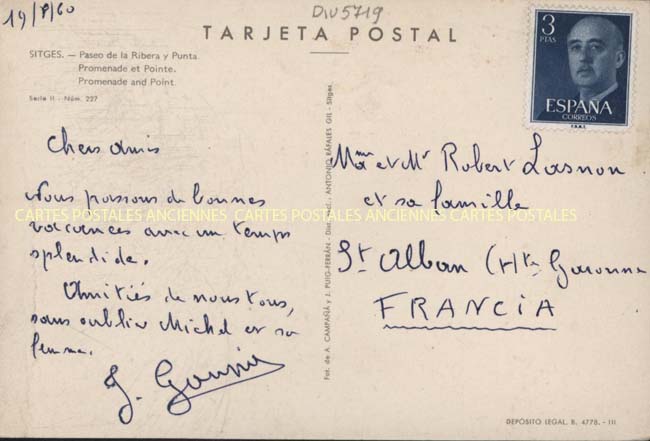 19/8/60
DIV5719
TARJETA POSTAL
SITGES. — Paseo de la Ribera y Punta.
Promenade et Pointe.
Promenade and Point.
Serie II - Núm. 227
3
PTAS
ESPAÑA
CORREOS
F.N.M.T.
Chers amis
Nous passons de bonnes
vacances avec un temps
splendide.
Amitiés de nous tous,
sans oublier Michel et sa
femme.
J.
Fot. de A. CAMPAÑÁ y J. PUIG-FERRÁN - Dist. excl. ANTONIO RÁFALES GIL - Sitges.
Mme et Mr Robert Lasnon
et sa famille
St Alban (Hte Garonne
FRANCIA
CARTES POSTALES ANCIENNES CARTES POSTALES ANCIENNES CARTES POSTALES
DEPÓSITO LEGAL. B. 4778. - III